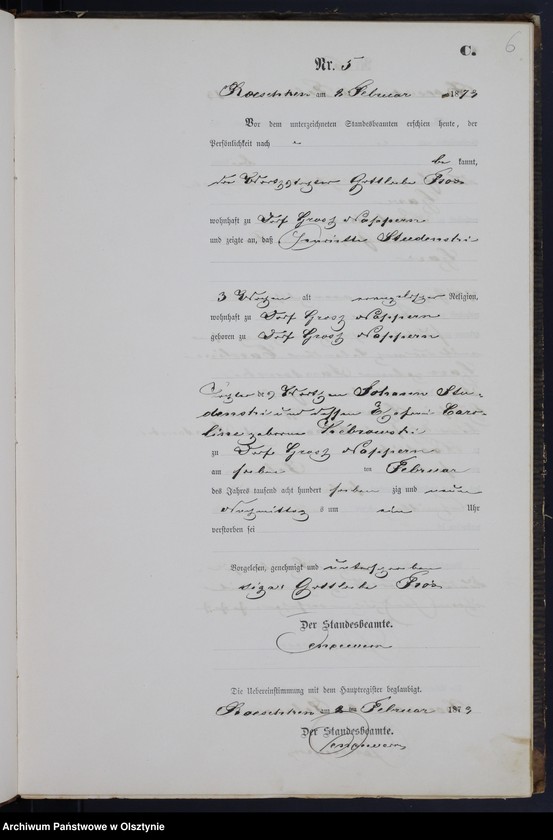 6
C.
Nr. 5
Roeschken am 8 Februar 1879
Vor dem unterzeichneten Standesbeamten erschien heute, der
Persönlichkeit nach
be kannt,
Gottliebe
wohnhaft zu Dorf Grosz Nappern
und zeigte an, daß Henriette Studenski
3 Wochen alt evangelischer Religion,
wohnhaft zu Dorf Grosz Nappern
geboren zu Dorf Grosz Nappern
Tochter des Johann Stu-
denski und dessen Ehefrau Caro-
line geborene
zu Dorf Grosz Nappern
am sieben ten Februar
des Jahres tausend acht hundert sieben zig und neun
Nachmittag s um ein Uhr
verstorben sei
Vorgelesen, genehmigt und unterschrieben
Gottliebe
Der Standesbeamte.
Die Uebereinstimmung mit dem Hauptregister beglaubigt.
Roeschken am 8 ten Februar 1879
Der Standesbeamte.
Archiwum Państwowe w Olsztynie